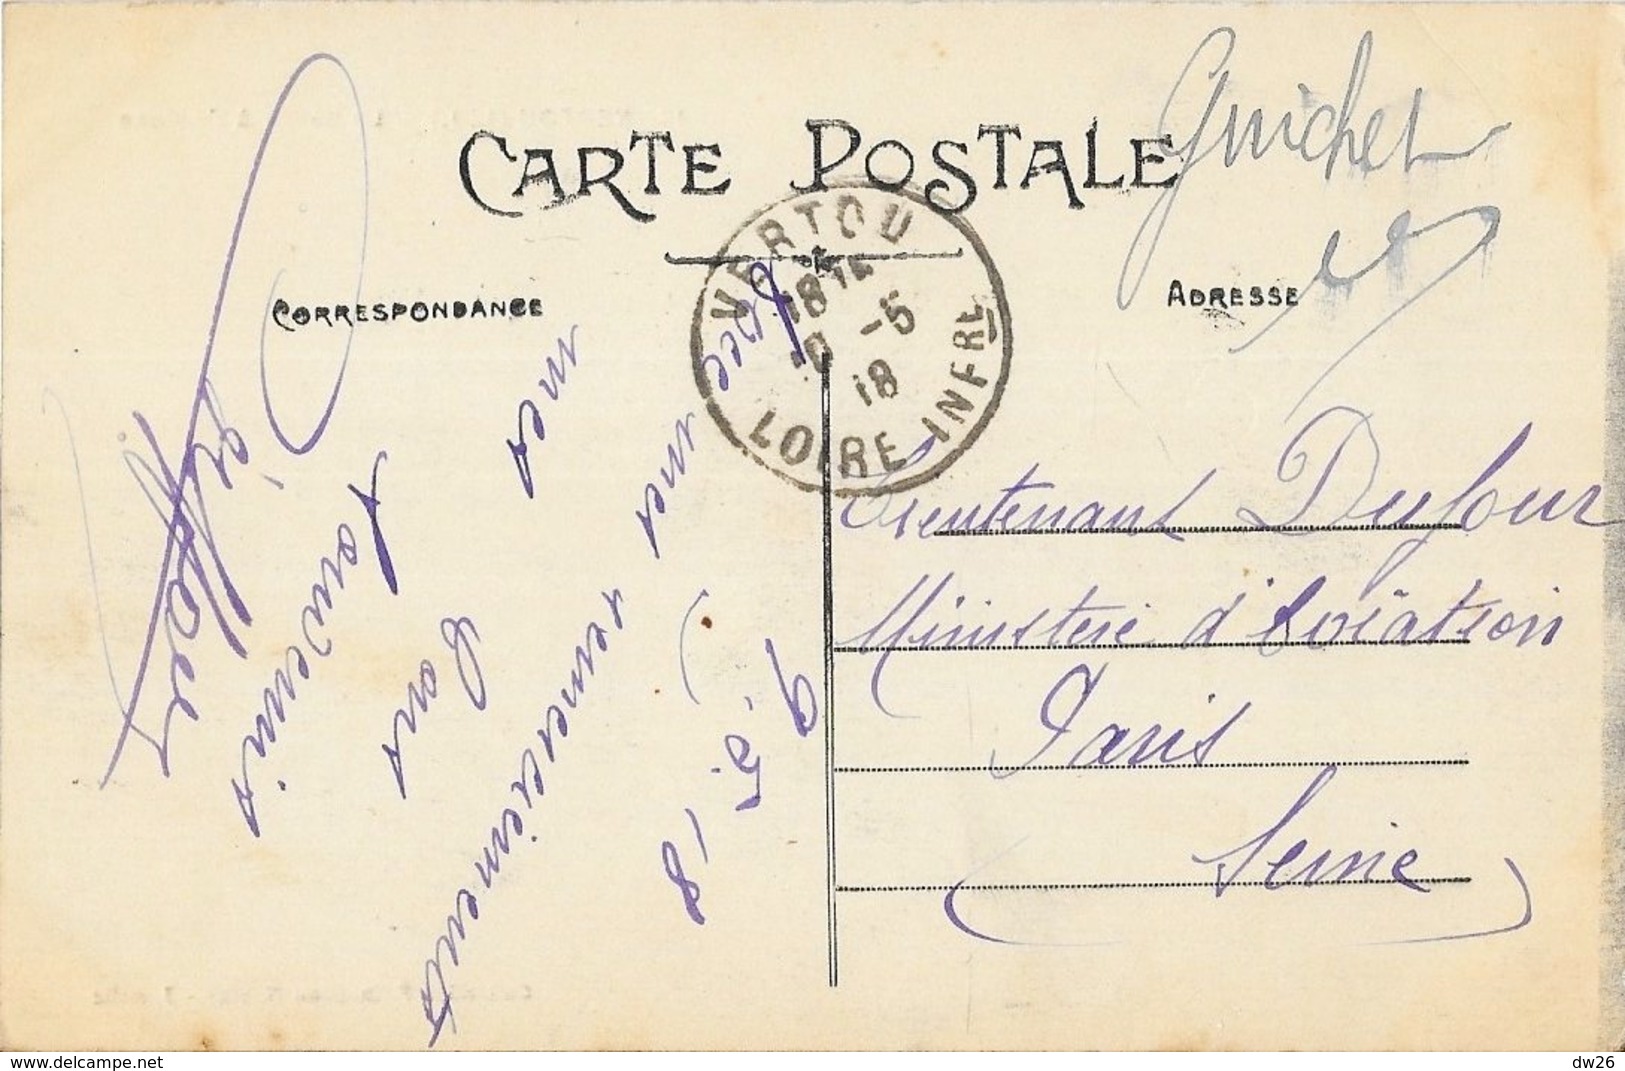 Guichet
CARTE POSTALE
CORRESPONDANCE
ADRESSE
VERTOU
18 14
10 -5
18
LOIRE INFRE
9.5.18
Avec mes remerciements
mes bons
souvenirs
Lieutenant Dufour
Ministère d'Aviation
Paris
Seine
dw26